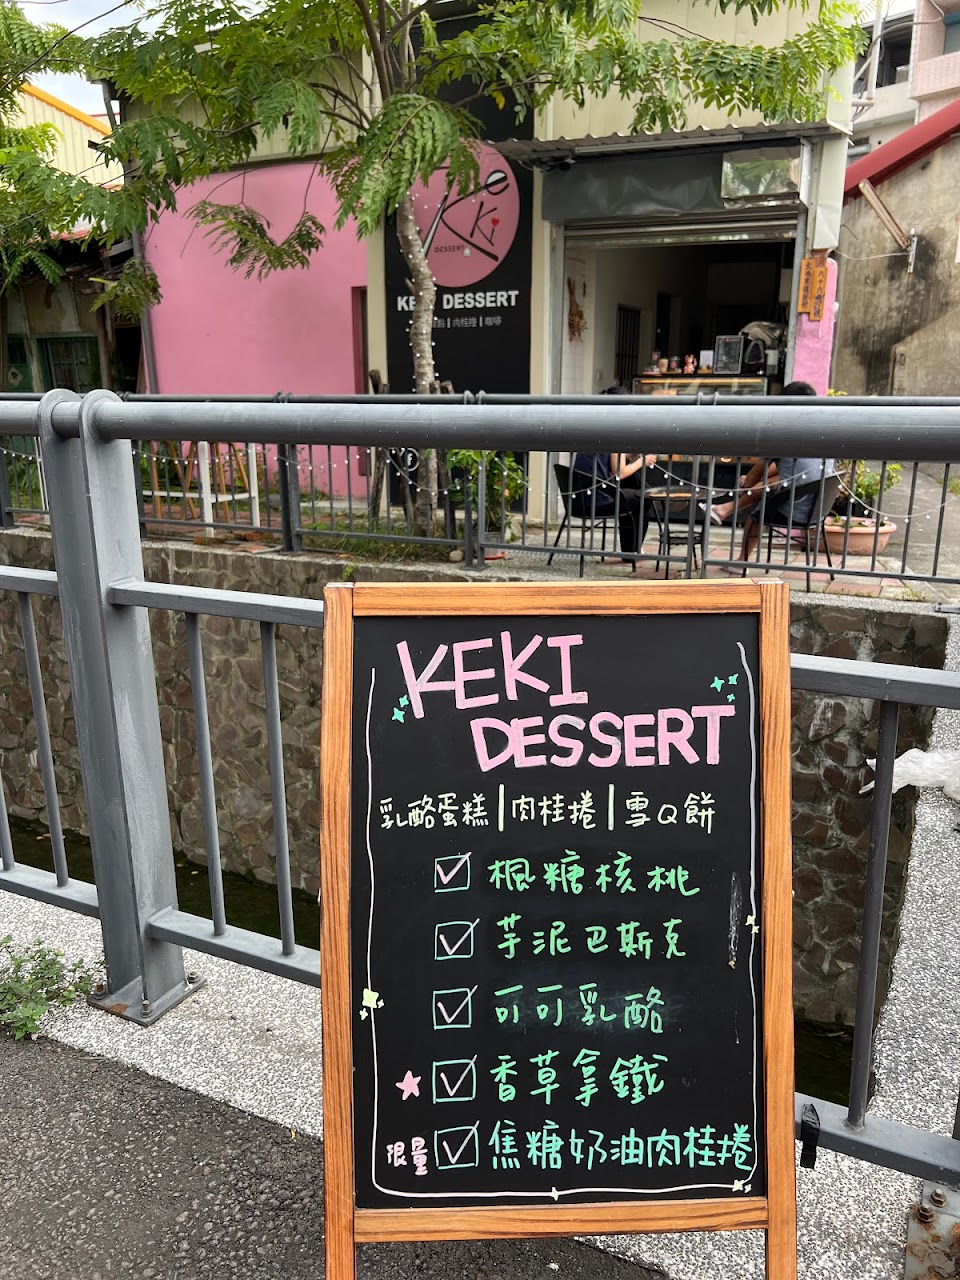 Ke
Ki
DESSERT
KEKI DESSERT
點 | 肉桂捲 | 咖啡
KEKI
DESSERT
乳酪蛋糕 | 肉桂捲 | 雪Q餅
楓糖核桃
芋泥巴斯克
可可乳酪
香草拿鐵
限量 焦糖奶油肉桂捲